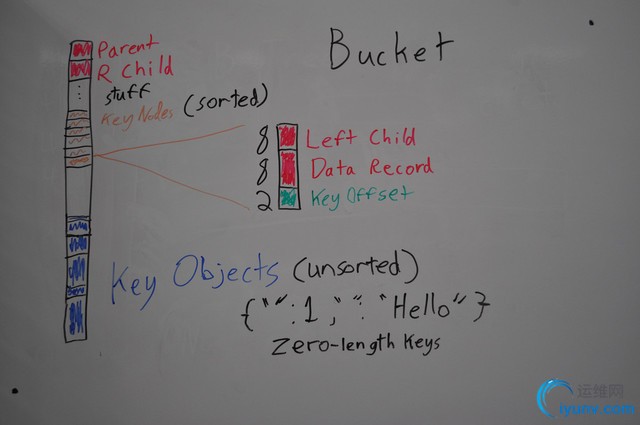 Bucket
Parent
R Child
⋮ stuff
Key Nodes (sorted)
8 Left Child
8 Data Record
2 Key Offset
Key Objects (unsorted)
{"":1,"":"Hello"}
Zero-length Keys
运维网
iyunv.com